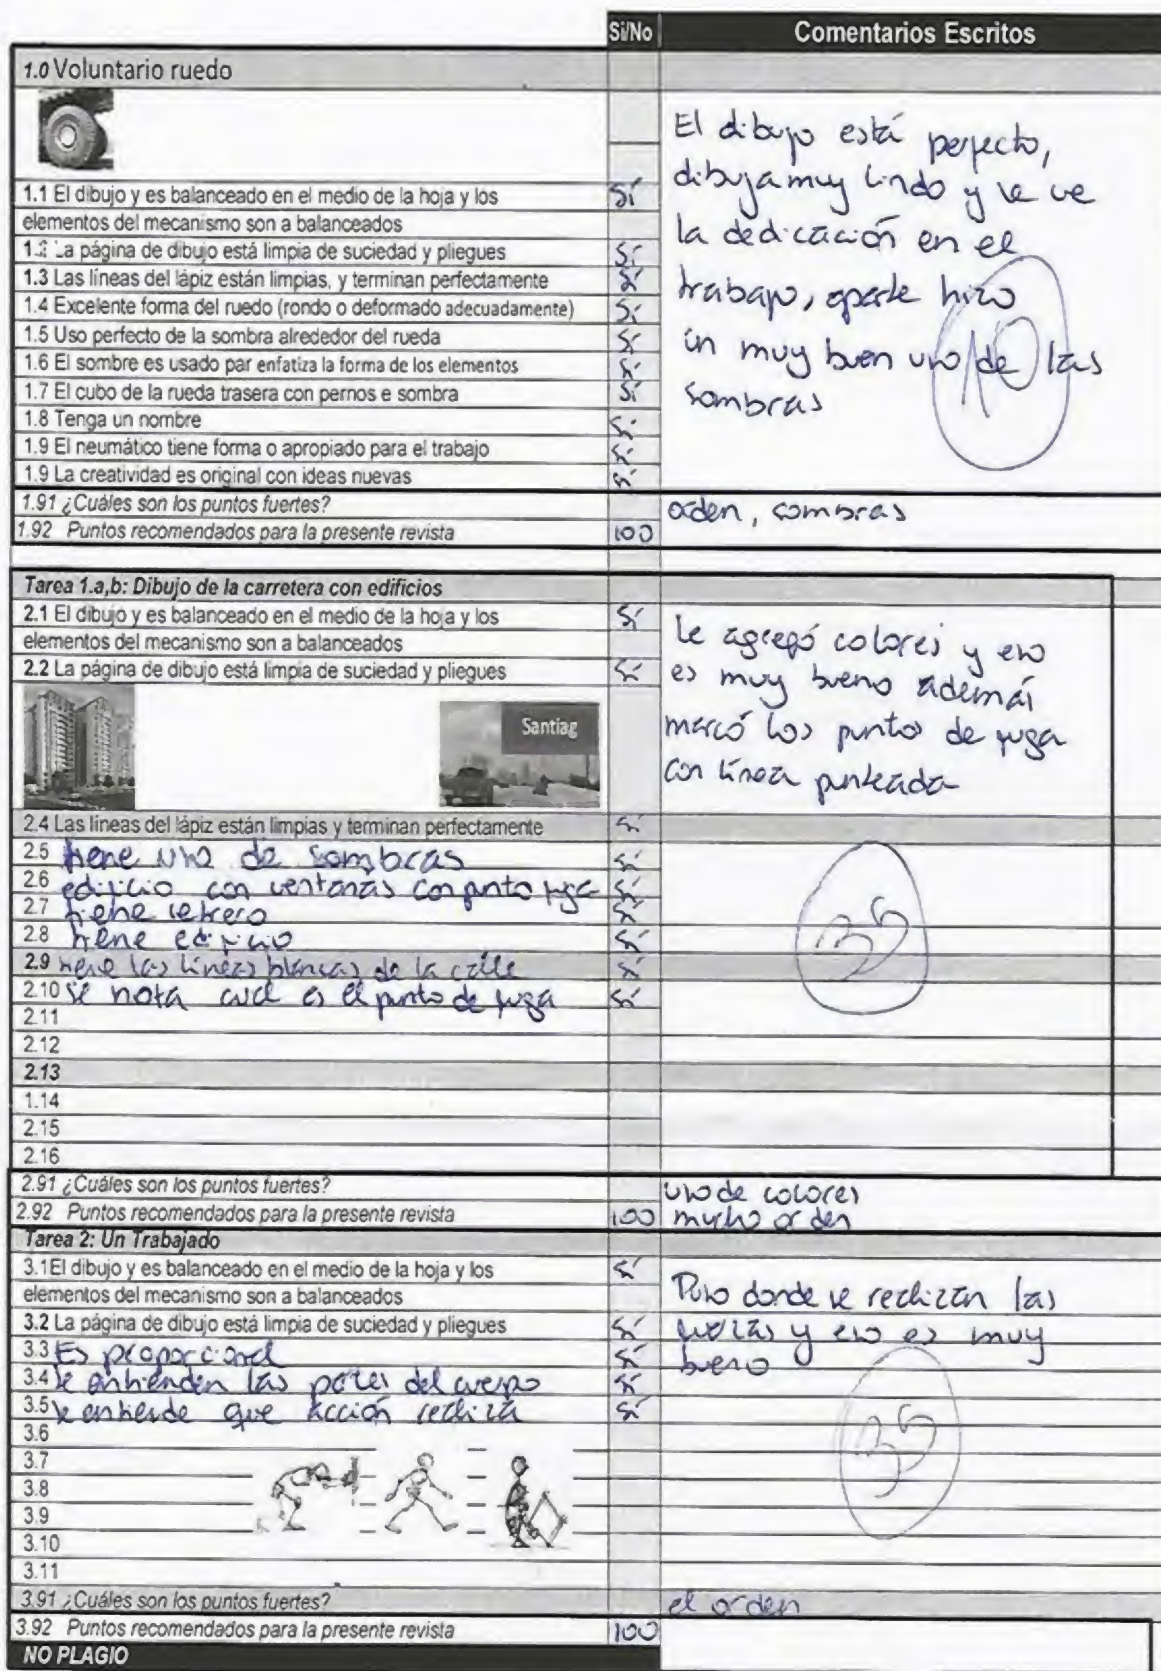 Si/No Comentarios Escritos
1.0 Voluntario ruedo
El dibujo está perfecto,
dibuja muy lindo y se ve
la dedicación en el
trabajo, aparte hizo
un muy buen uso de las
sombras
1.1 El dibujo y es balanceado en el medio de la hoja y los Sí
elementos del mecanismo son a balanceados
La página de dibujo está limpia de suciedad y pliegues Sí
1.3 Las líneas del lápiz están limpias, y terminan perfectamente Sí
1.4 Excelente forma del ruedo (rondo o deformado adecuadamente) Sí
1.5 Uso perfecto de la sombra alrededor del rueda Sí
1.6 El sombre es usado par enfatiza la forma de los elementos Sí
1.7 El cubo de la rueda trasera con pernos e sombra Sí
1.8 Tenga un nombre Sí
1.9 El neumático tiene forma o apropiado para el trabajo Sí
1.9 La creatividad es original con ideas nuevas Sí
1.91 ¿Cuáles son los puntos fuertes? orden, sombras
1.92 Puntos recomendados para la presente revista 100
Tarea 1.a,b: Dibujo de la carretera con edificios
2.1 El dibujo y es balanceado en el medio de la hoja y los Sí
elementos del mecanismo son a balanceados
2.2 La página de dibujo está limpia de suciedad y pliegues Sí
Le agregó colores y eso
es muy bueno además
marcó los punto de fuga
con línea punteada
Santiag
2.4 Las líneas del lápiz están limpias y terminan perfectamente Sí
2.5 tiene uso de sombras Sí
2.6 edificio con ventanas con punto fuga Sí
2.7 tiene letrero Sí
2.8 tiene edificio Sí
2.9 tiene las líneas blancas de la calle Sí
2.10 se nota cual es el punto de fuga Sí
2.11
2.12
2.13
1.14
2.15
2.16
2.91 ¿Cuáles son los puntos fuertes? uso de colores
2.92 Puntos recomendados para la presente revista 100 mucho orden
Tarea 2: Un Trabajado
3.1 El dibujo y es balanceado en el medio de la hoja y los Sí
elementos del mecanismo son a balanceados
3.2 La página de dibujo está limpia de suciedad y pliegues Sí
Puso donde se realizan las
fuerzas y eso es muy
bueno
3.3 Es proporcional Sí
3.4 se entienden las partes del cuerpo Sí
3.5 se entiende que acción realiza Sí
3.6
3.7
3.8
3.9
3.10
3.11
3.91 ¿Cuáles son los puntos fuertes? el orden
3.92 Puntos recomendados para la presente revista 100
NO PLAGIO